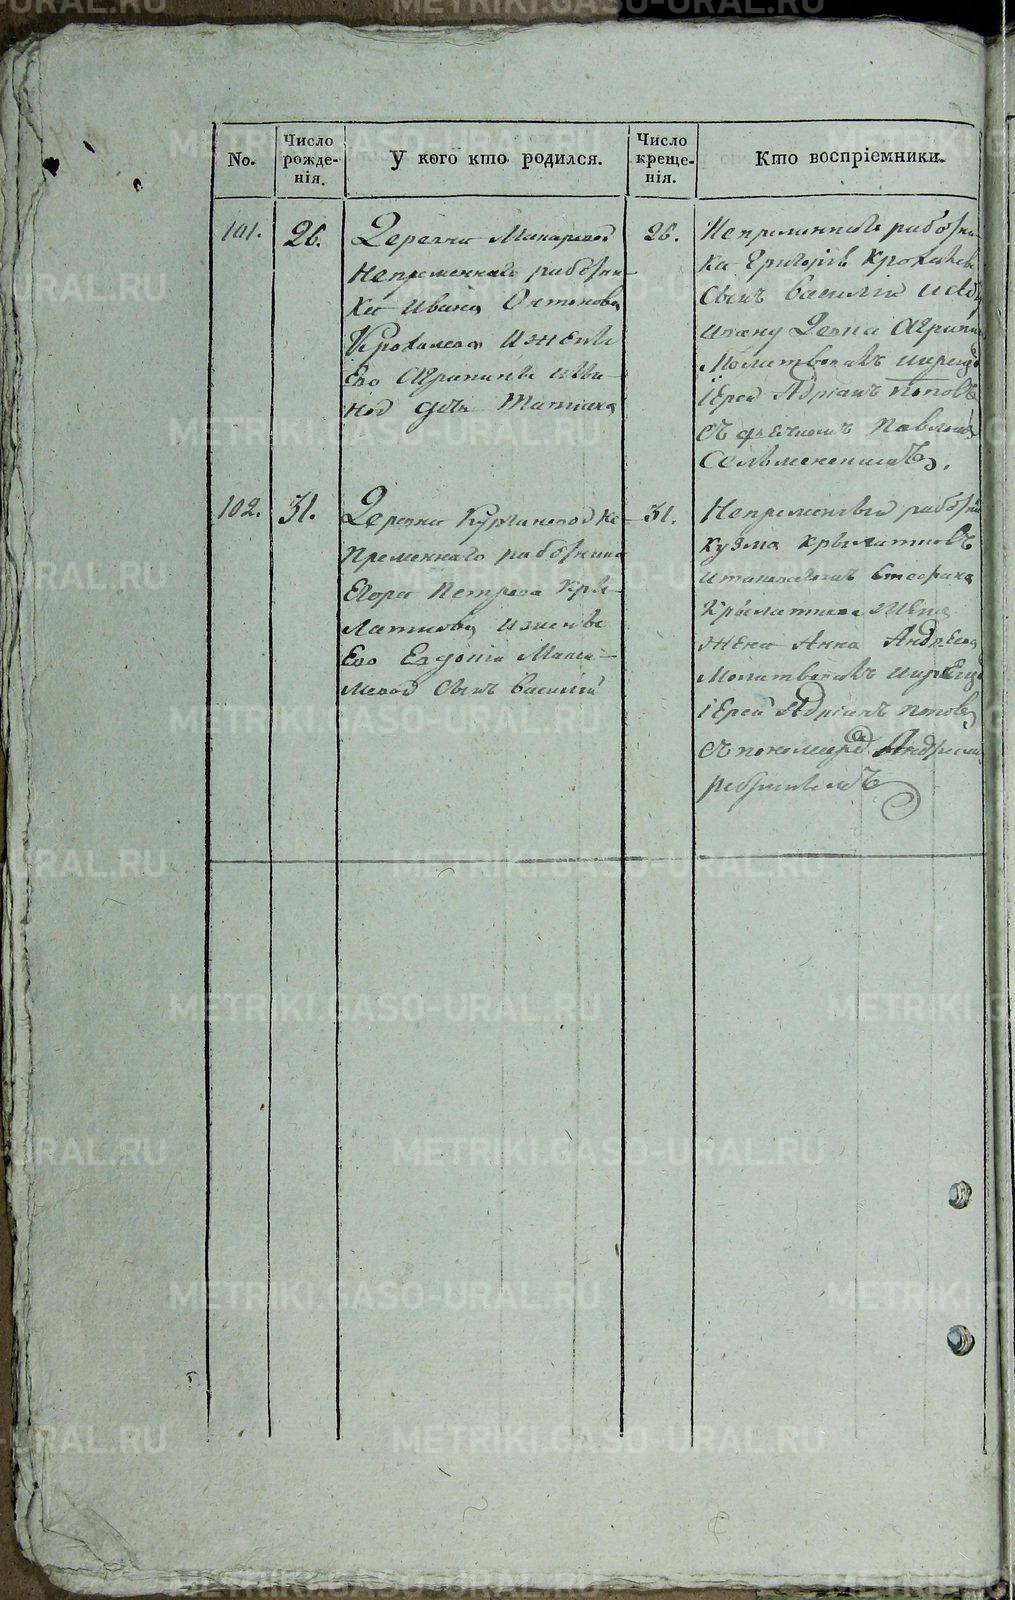 No.
Число рожде-нія.
У кого кто родился.
Число креще-нія.
Кто воспріемники.
101.
26.
Деревни Макаровой
Непременнаго работни-
ка Ивана Антонова
Крохалева и жены
Его Агрипины
ной дочь Татиана
26.
Непременнаго работни-
ка Григорія Крохалева
Сынъ Василій
Агрипина
Молитвовалъ и крещ
Іерей Адріанъ Поповъ
съ дьячкомъ Павломъ
102.
31.
Деревни Кургановой Не
пременнаго работника
Егора Петрова Кры-
латкова и жены
Его Евдокіи Макси-
мовой Сынъ Василій
31.
Непременный работни
Кузма Крылатковъ
Крылаткова
Жена Анна Андреева
Молитвовалъ и крещ
Іерей Адріанъ Поповъ
съ пономаремъ Андреемъ
METRIKI.GASO-URAL.RU